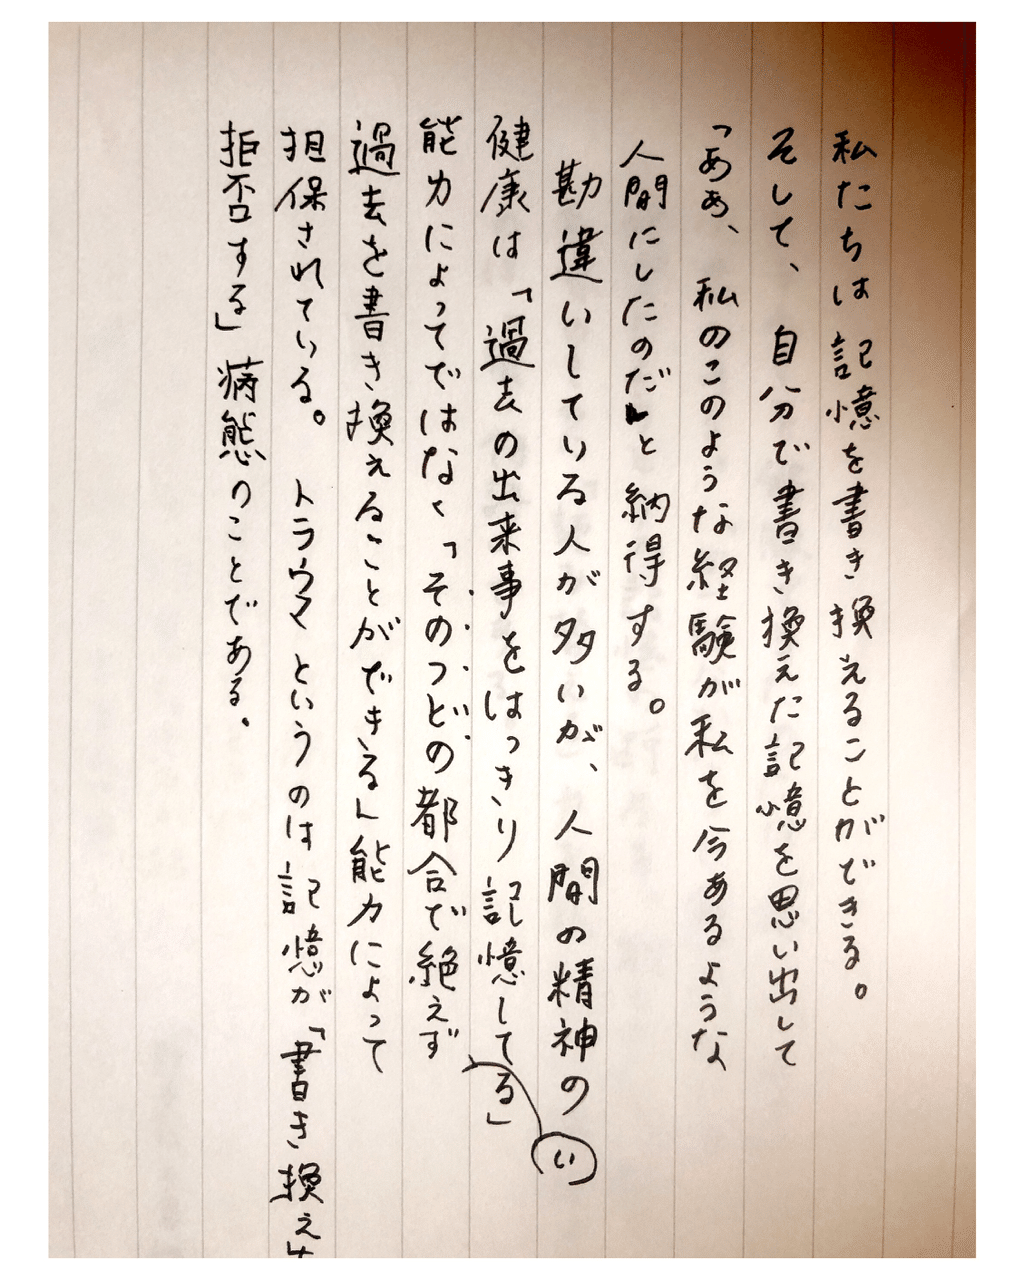 私たちは記憶を書き換えることができる。
そして、自分で書き換えた記憶を思い出して
「ああ、私のこのような経験が私を今あるような
人間にしたのだ」と納得する。
勘違いしている人が多いが、人間の精神の
健康は「過去の出来事をはっきり記憶している」
能力によってではなく「そのつどの都合で絶えず
過去を書き換えることができる」能力によって
担保されている。トラウマというのは記憶が「書き換え
拒否する」病態のことである。